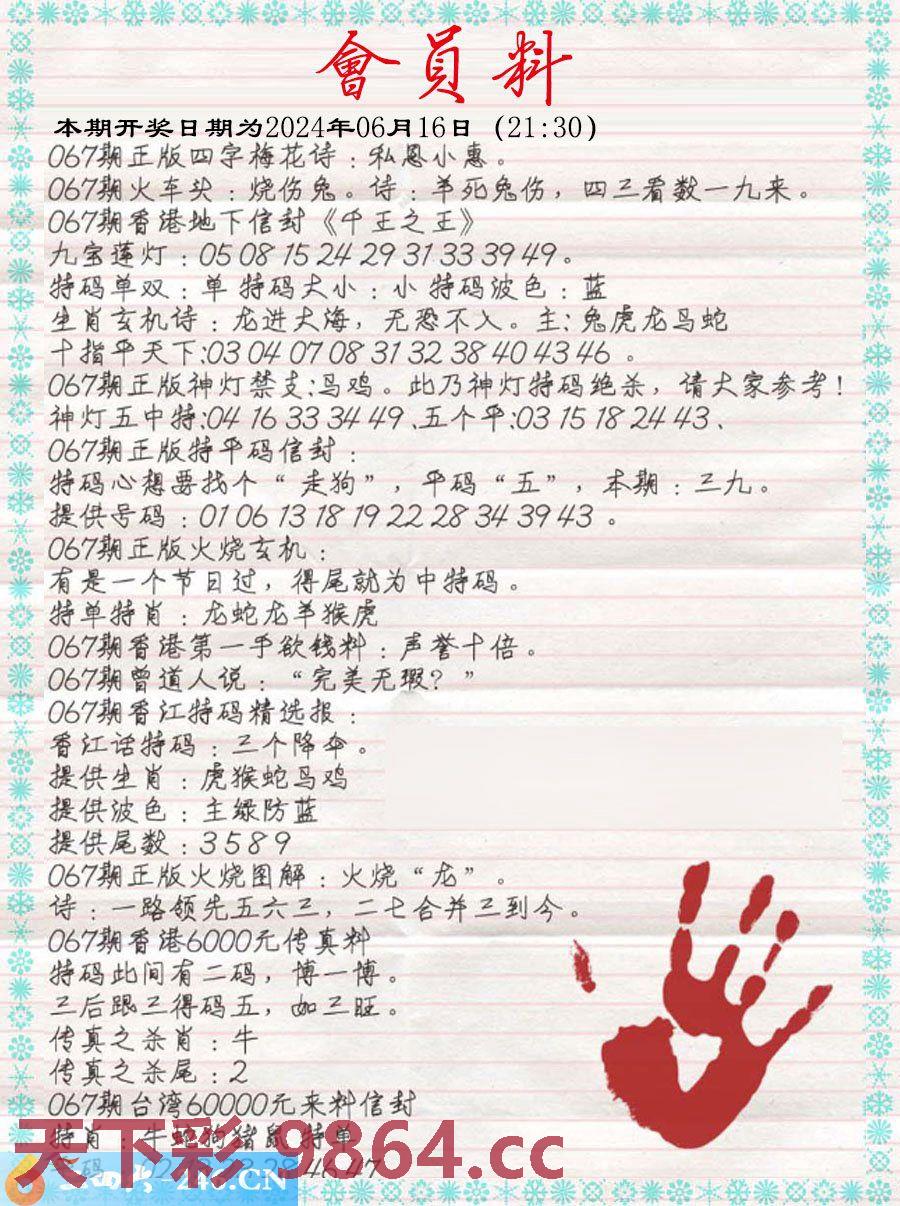 會員料
本期开奖日期为2024年06月16日（21:30）
067期正版四字梅花诗：私恩小惠。
067期火车头：烧伤兔。诗：羊死兔伤，四三看数一九来。
067期香港地下信封《千王之王》
九宝莲灯：05 08 15 24 29 31 33 39 49。
特码单双：单 特码大小：小 特码波色：蓝
生肖玄机诗：龙进大海，无恐不入。主:兔虎龙马蛇
十指平天下:03 04 07 08 31 32 38 40 43 46 。
067期正版神灯禁支:马鸡。此乃神灯特码绝杀，请大家参考！
神灯五中特:04 16 33 34 49 、五个平:03 15 18 24 43、
067期正版特平码信封：
特码心想要找个“走狗”，平码“五”，本期：三九。
提供号码：01 06 13 18 19 22 28 34 39 43 。
067期正版火烧玄机：
有是一个节日过，得尾就为中特码。
特单特肖：龙蛇龙羊猴虎
067期香港第一手欲钱料：声誉十倍。
067期曾道人说：“完美无瑕？”
067期香江特码精选报：
香江话特码：三个降伞。
提供生肖：虎猴蛇马鸡
提供波色：主绿防蓝
提供尾数：3 5 8 9
067期正版火烧图解：火烧“龙”。
诗：一路领先五六三，二七合并三到今。
067期香港6000元传真料
特码此间有二码，博一博。
三后跟三得码五，如三旺。
传真之杀肖：牛
传真之杀尾：2
067期台湾60000元来料信封
特肖：牛蛇狗猪鼠 特单
46 47
天下彩.9864.cc
246.CN